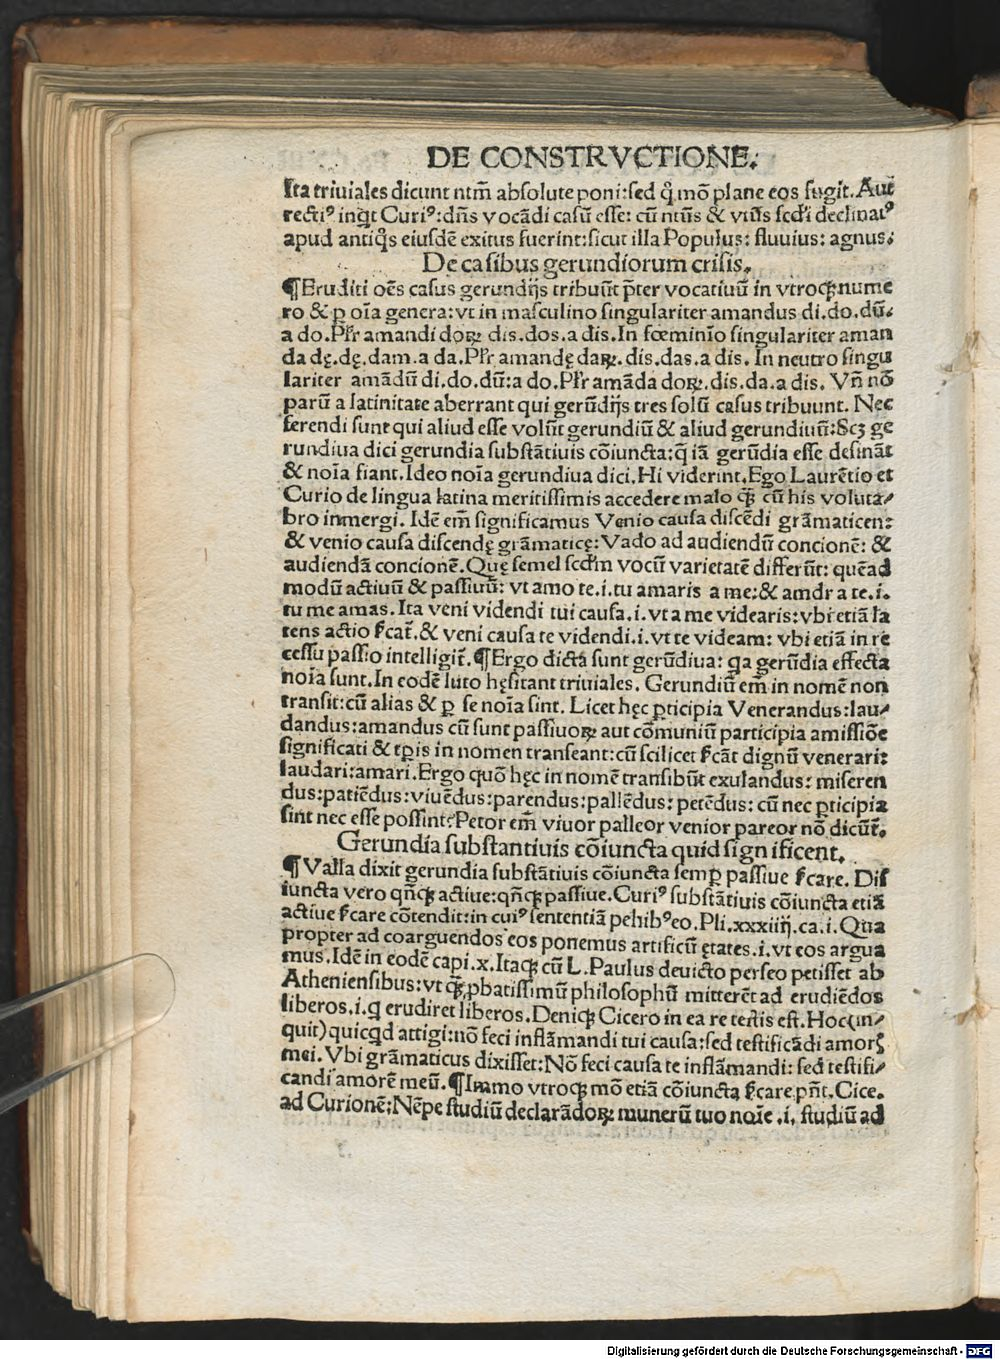 DE CONSTRVCTIONE.
Ita triuiales dicunt ntm̄ absolute poni:sed q̄ mō plane eos fugit. Aut
recti⁹ inqt Curi⁹:dn̄s vocādi casū esse: cū ntūs & vtūs scd̄i declinat⁹
apud antiq̄s eiusdē exitus fuerint:sicut illa Populus: fluuius: agnus:
De casibus gerundiorum crisis.
¶Eruditi oēs casus gerundijs tribuūt p̄ter vocatiuū in vtroqꝫ nume
ro & ꝑ oīa genera:vt in masculino singulariter amandus di.do.dū.
a do.Pl̄r amandi doꝝ dis.dos.a dis.In fœminīo singulariter aman
da dę.dę.dam.a da.Pl̄r amandę daꝝ.dis.das.a dis. In neutro singu
lariter amādū di.do.dū:a do.Pl̄r amāda doꝝ.dis.da.a dis. Vn̄ nō
parū a latinitate aberrant qui gerūdijs tres solū casus tribuunt. Nec
ferendi sunt qui aliud esse volūt gerundiū & aliud gerundiuū:Scꝫ ge
rundiua dici gerundia substātiuis cōiuncta:q̄ iā gerūdia esse desināt
& noīa fiant.Ideo noīa gerundiua dici.Hi viderint.Ego Laurētio et
Curio de lingua latina meritissimis accedere malo qꝫ̄ cū his voluta-
bro inmergi. Idē em̄ significamus Venio causa discēdi grāmaticen:
& venio causa discendę grāmaticę:Vado ad audiendū concionē: &
audiendā concionē.Quę semel scdm̄ vocū varietatē differūt: quēad
modū actiuū & passiuū: vt amo te.i.tu amaris a me:& amor a te.i.
tu me amas. Ita veni videndi tui causa.i.vt a me videaris:vbi etiā la
tens actio s̄cat̄.& veni causa te videndi.i.vt te videam: vbi etiā in re
cessu passio intelligit̄.¶Ergo dicta sunt gerūdiua: qa gerūdia effecta
noīa sunt.In eodē luto hęsitant triuiales. Gerundiū em̄ in nomē non
transit:cū alias & ꝑ se noīa sint. Licet hęc ꝑticipia Venerandus:lau-
dandus:amandus cū sunt passiuoꝝ aut cōmuniū participia amissiōe
significati & tꝑis in nomen transeant:cū scilicet s̄cāt dignū venerari:
laudari:amari.Ergo quō hęc in nomē transibūt exulandus: miseren
dus:patiēdus:viuēdus:parendus:pallēdus: petēdus: cū nec ꝑticipia
sint nec esse possint?Petor em̄ viuor palleor venior pareor nō dicūt̄.
Gerundia substantiuis cōiuncta quid significent.
¶Valla dixit gerundia substātiuis cōiuncta semꝑ passiue s̄care. Dis
iuncta vero qn̄qꝫ actiue:qn̄qꝫ passiue.Curi⁹ substātiuis cōiuncta etiā
actiue s̄care cōtendit:in cui⁹ sententiā pehib⁹eo.Pli.xxxiiij.ca.i.Qua
propter ad coarguendos eos ponemus artificū ętates.i.vt eos argua
mus.Idē in eodē capi.x.Itaqꝫ cū L.Paulus deuicto perseo petisset ab
Atheniensibus:vt qꝫ̄ ꝓbatissimū philosophū mitterēt ad erudiēdos
liberos.i.q erudiret liberos.Deniqꝫ Cicero in ea re testis est.Hoc(in-
quit)quicqd attigi:nō feci inflāmandi tui causa:sed testificādi amorꝭ
mei.Vbi grāmaticus dixisset:Nō feci causa te inflāmandi: sed testifi-
candi amorē meū.¶Immo vtroqꝫ mō etiā cōiuncta s̄care pn̄t.Cice.
ad Curionē:Nēpe studiū declarādoꝝ munerū tuo noīe .i. studiū ad
Digitalisierung gefördert durch die Deutsche Forschungsgemeinschaft - DFG